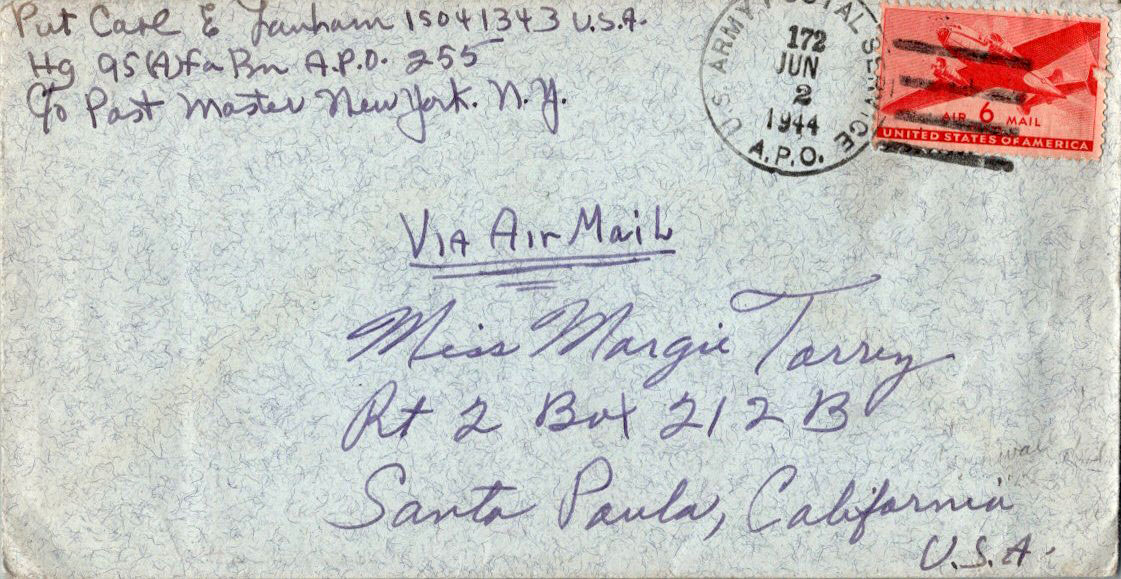 Pvt Carl E Lanham 15041343 U.S.A.
Hq 95(A)Fa Bn A.P.O. 255
C/o Post Master New York. N.Y.
U.S. ARMY POSTAL SERVICE
172
JUN
2
1944
A.P.O.
AIR 6 MAIL
UNITED STATES OF AMERICA
VIA AIR MAIL
Miss Margie Torrey
Rt 2 Box 212 B
Santa Paula, California
U.S.A.